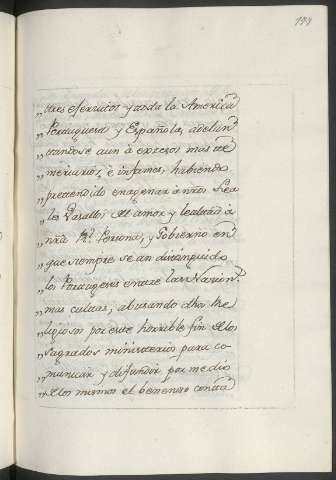 "otros esfervicios y toda la America
"Portuguesa y Española, adelan
"tandose aun à excesos mas te
"merarios, è infames, habiendo
"prettendido enagenar à nros Lea
"les Vasallos, del amor y lealtad à
"nra Rl. Persona, y Govierno en
"que siempre se an distinguido
"los Portugueses entre las Nacion.s
"mas cultas; abusando dhos Re
"ligiosos por este horrible fin de los
"sagrados ministerios para co-
"municar y difundir por medio
"de los mismos el benenoso contta